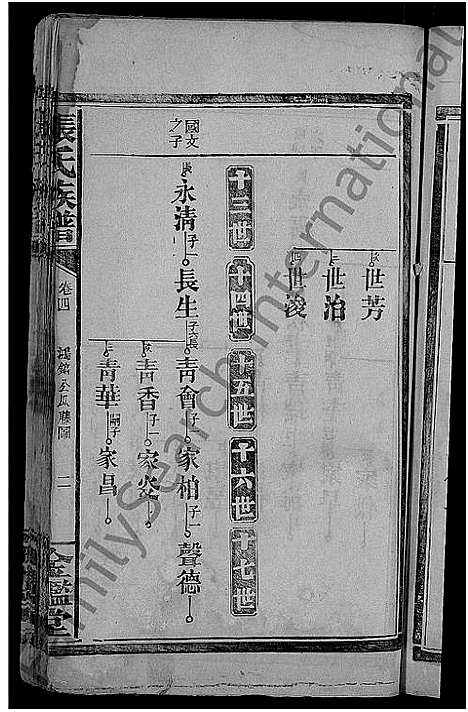 世芳
世治
世浚
十三世 十四世 十五世 十六世 十七世
國文之子
永清 子一 長生 子三 長 青會 子一 家柏 子一 聲德
次 青香 子一 家炎
青華 嗣子 家昌
張氏族譜 卷四 二 金鑑堂
FamilySearch International